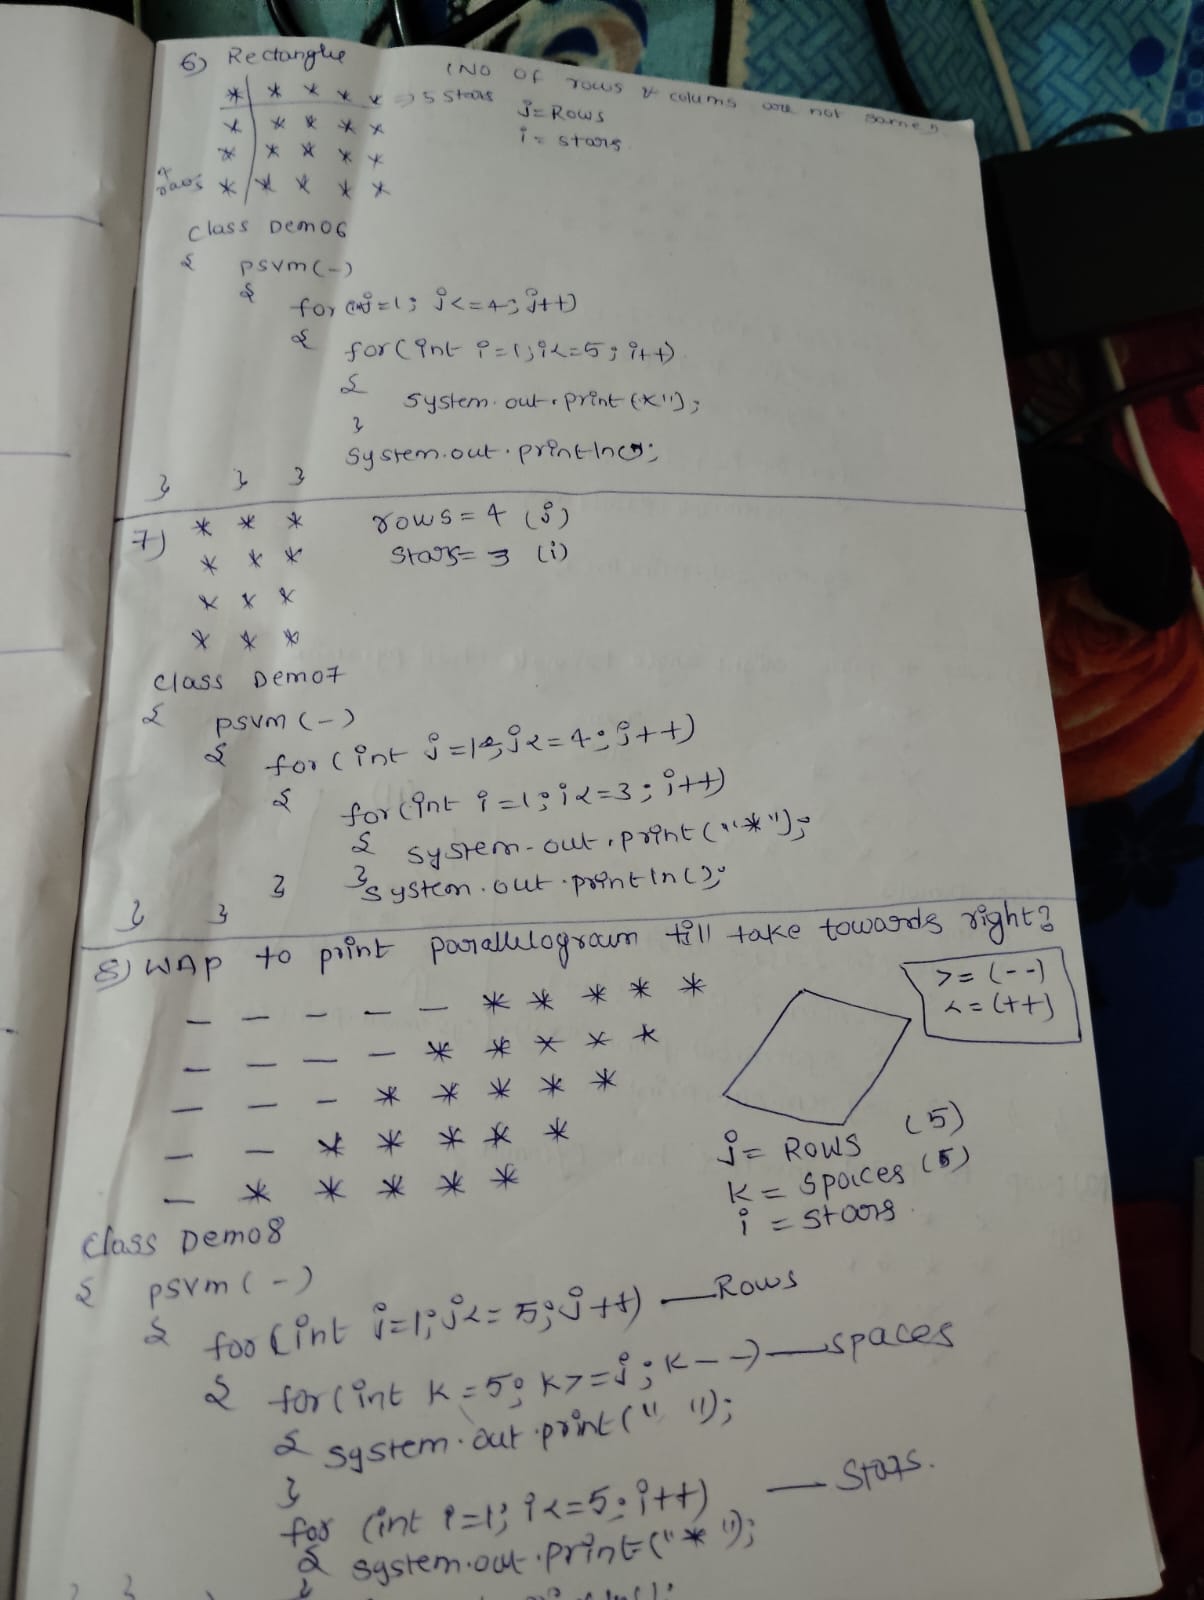 6) Rectangle
(No of rows & colums are not same)
* * * * * => 5 stars
j = Rows
* * * * *
i = stars
* * * * *
4 rows * * * * *
class Demo6
{ psvm(-)
{ for (int j=1; j<=4; j++)
{ for(int i=1; i<=5; i++)
{ system.out.print(*");
}
system.out.println();
} } }
7) * * * rows = 4 (j)
* * * stars = 3 (i)
* * *
* * *
class Demo7
{ psvm(-)
{ for (int j=1; j<=4; j++)
{ for(int i=1; i<=3; i++)
{ system.out.print("*");
} system.out.println();
} } }
8) WAP to print parallelogram till take towards right?
>= (--)
<= (++)
_ _ _ _ _ * * * * *
_ _ _ _ * * * * *
_ _ _ * * * * *
_ _ * * * * *
_ * * * * *
j = Rows (5)
k = spaces (5)
i = stars.
class Demo8
{ psvm(-)
{ for (int j=1; j<=5; j++) — Rows
{ for(int k=5; k>=j; k--) — spaces
{ system.out.print(" ");
}
for (int i=1; i<=5; i++) — stars.
{ system.out.print("*");
}